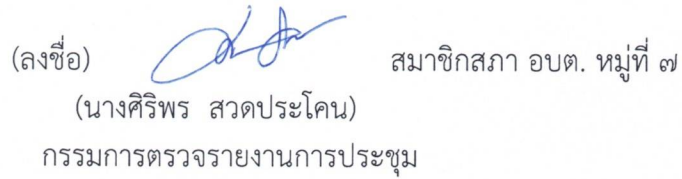 (ลงชื่อ) สมาชิกสภา อบต. หมู่ที่ ๗
(นางศิริพร สวดประโคน)
กรรมการตรวจรายงานการประชุม